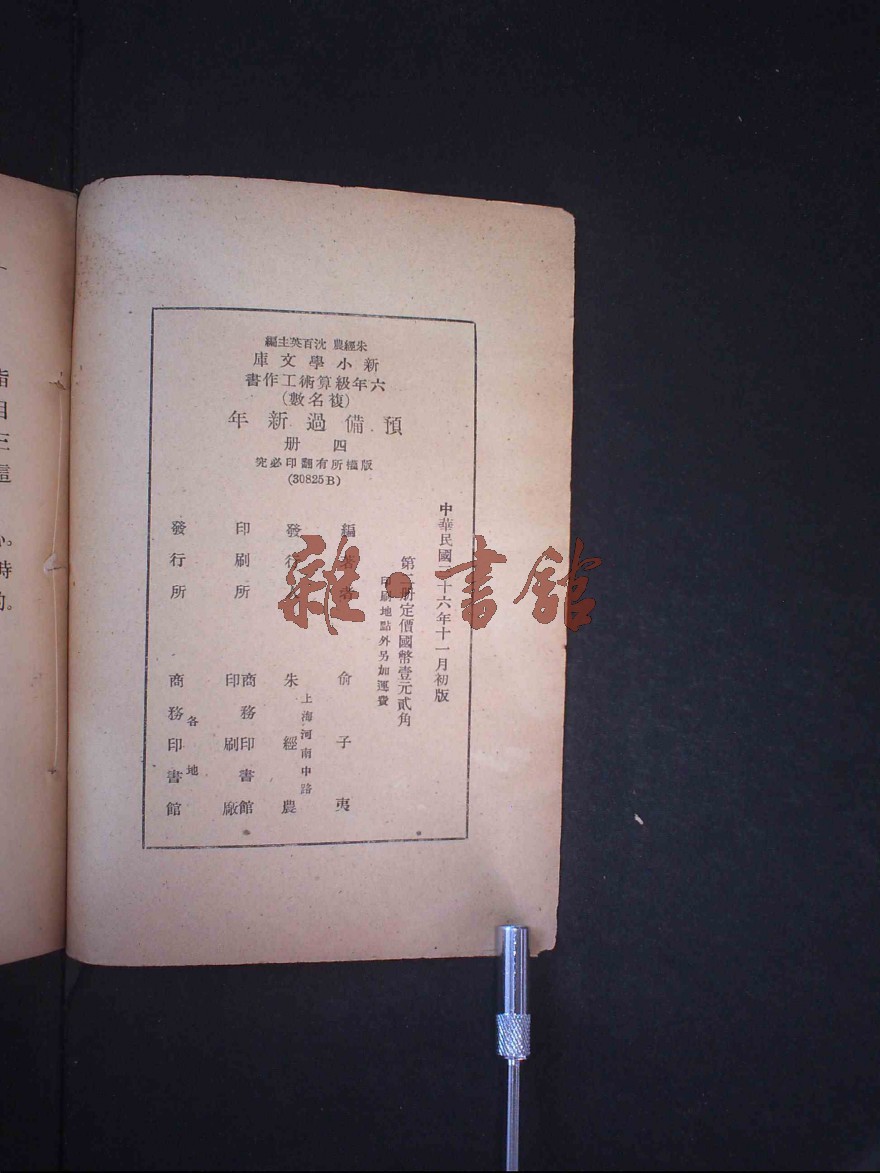 朱經農 沈百英主編
新小學文庫
六年級算術工作書
(複名數)
預備過新年
四册
版權所有翻印必究
(30825 B)
中華民國三十六年十一月初版
第册定價國幣壹元貳角
印刷地點外另加運費
編著者 俞子夷
發行人 朱經農
上海河南中路
印刷所 商務印書館
印刷廠
發行所 商務印書館
各地
雜·書館
這
時